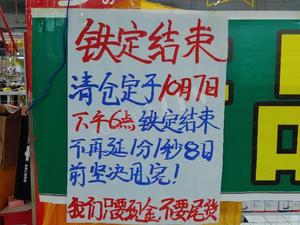 铁定结束
清仓定于10月7日
下午6点铁定结束
不再延1分1秒8日
前坚决甩完!
我们只要现金不要尾货